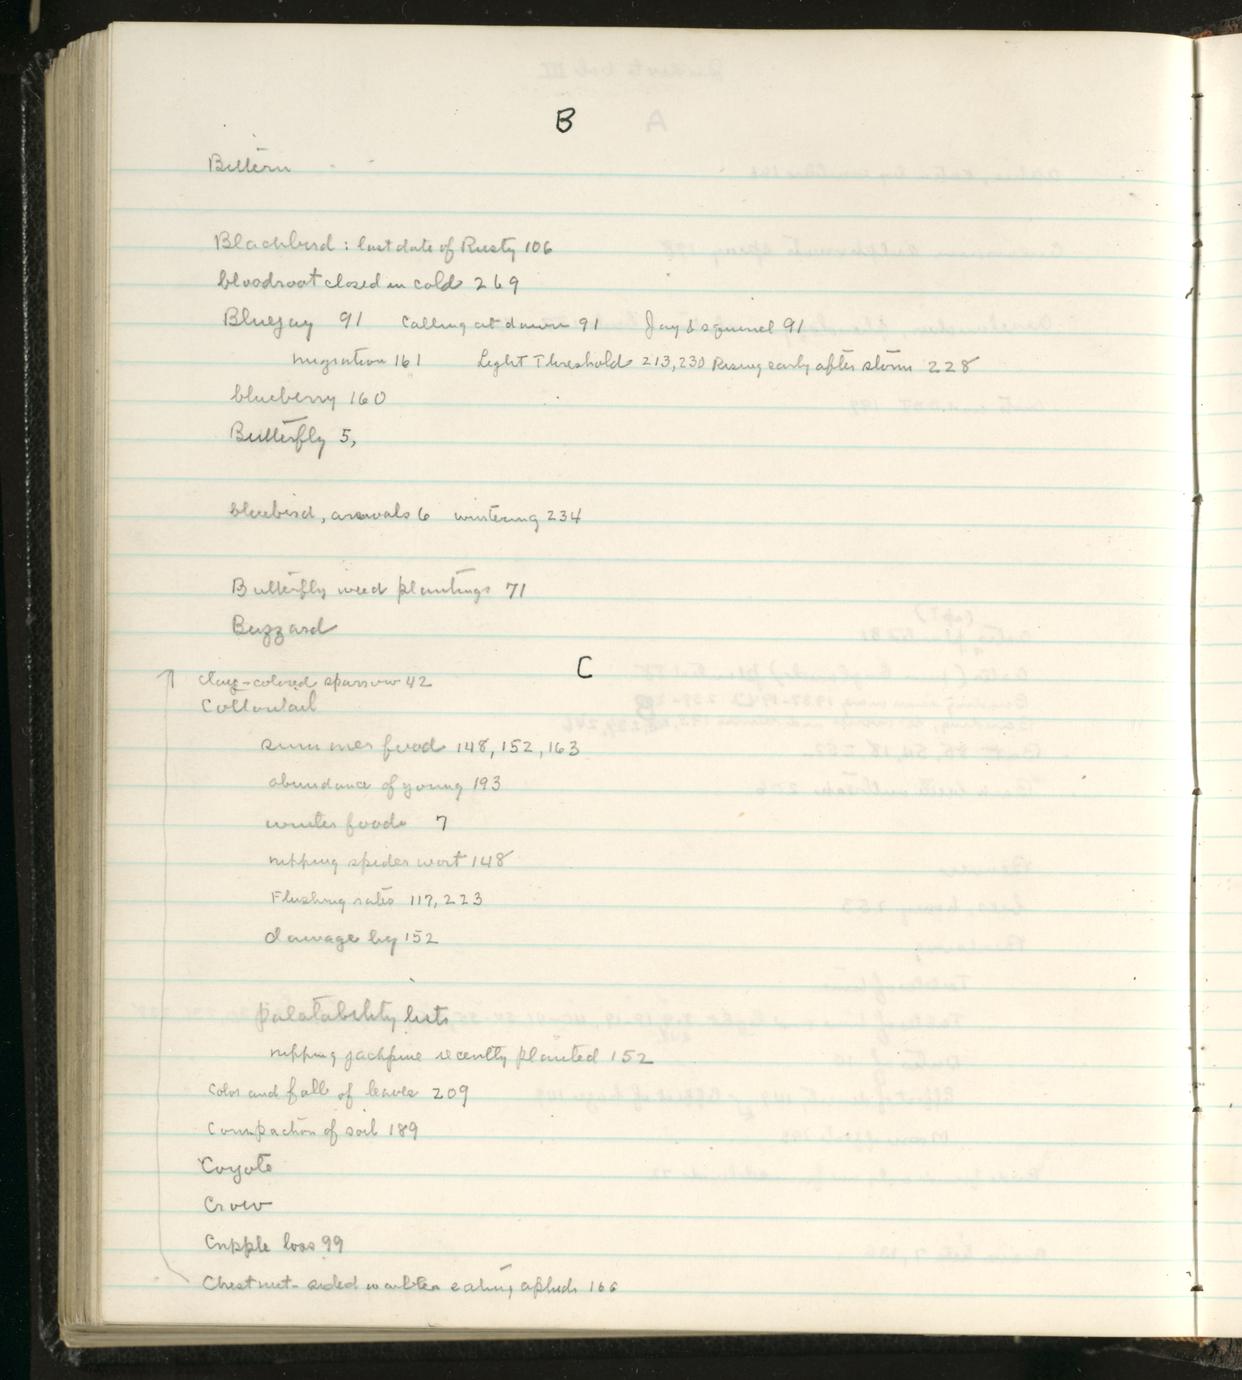 B
Bittern
Blackbird: last date of Rusty 106
bloodroot closed in cold 269
Bluejay 91 Calling at dawn 91 Jay & squirrel 91
migration 161 Light Threshold 213, 230 Rising early after storm 228
blueberry 160
Butterfly 5,
bluebird, arrivals 6 wintering 234
Butterfly weed plantings 71
Buzzard
C
clay-colored sparrow 42
Cottontail
summer food 148, 152, 163
abundance of young 193
winter foods 7
nipping spiderwort 148
Flushing rates 117, 223
damage by 152
palatability lists
nipping jackpine recently planted 152
Color and fall of leaves 209
Compaction of soil 189
Coyote
Crow
Cripple loss 99
Chestnut-sided warbler eating aphids 166